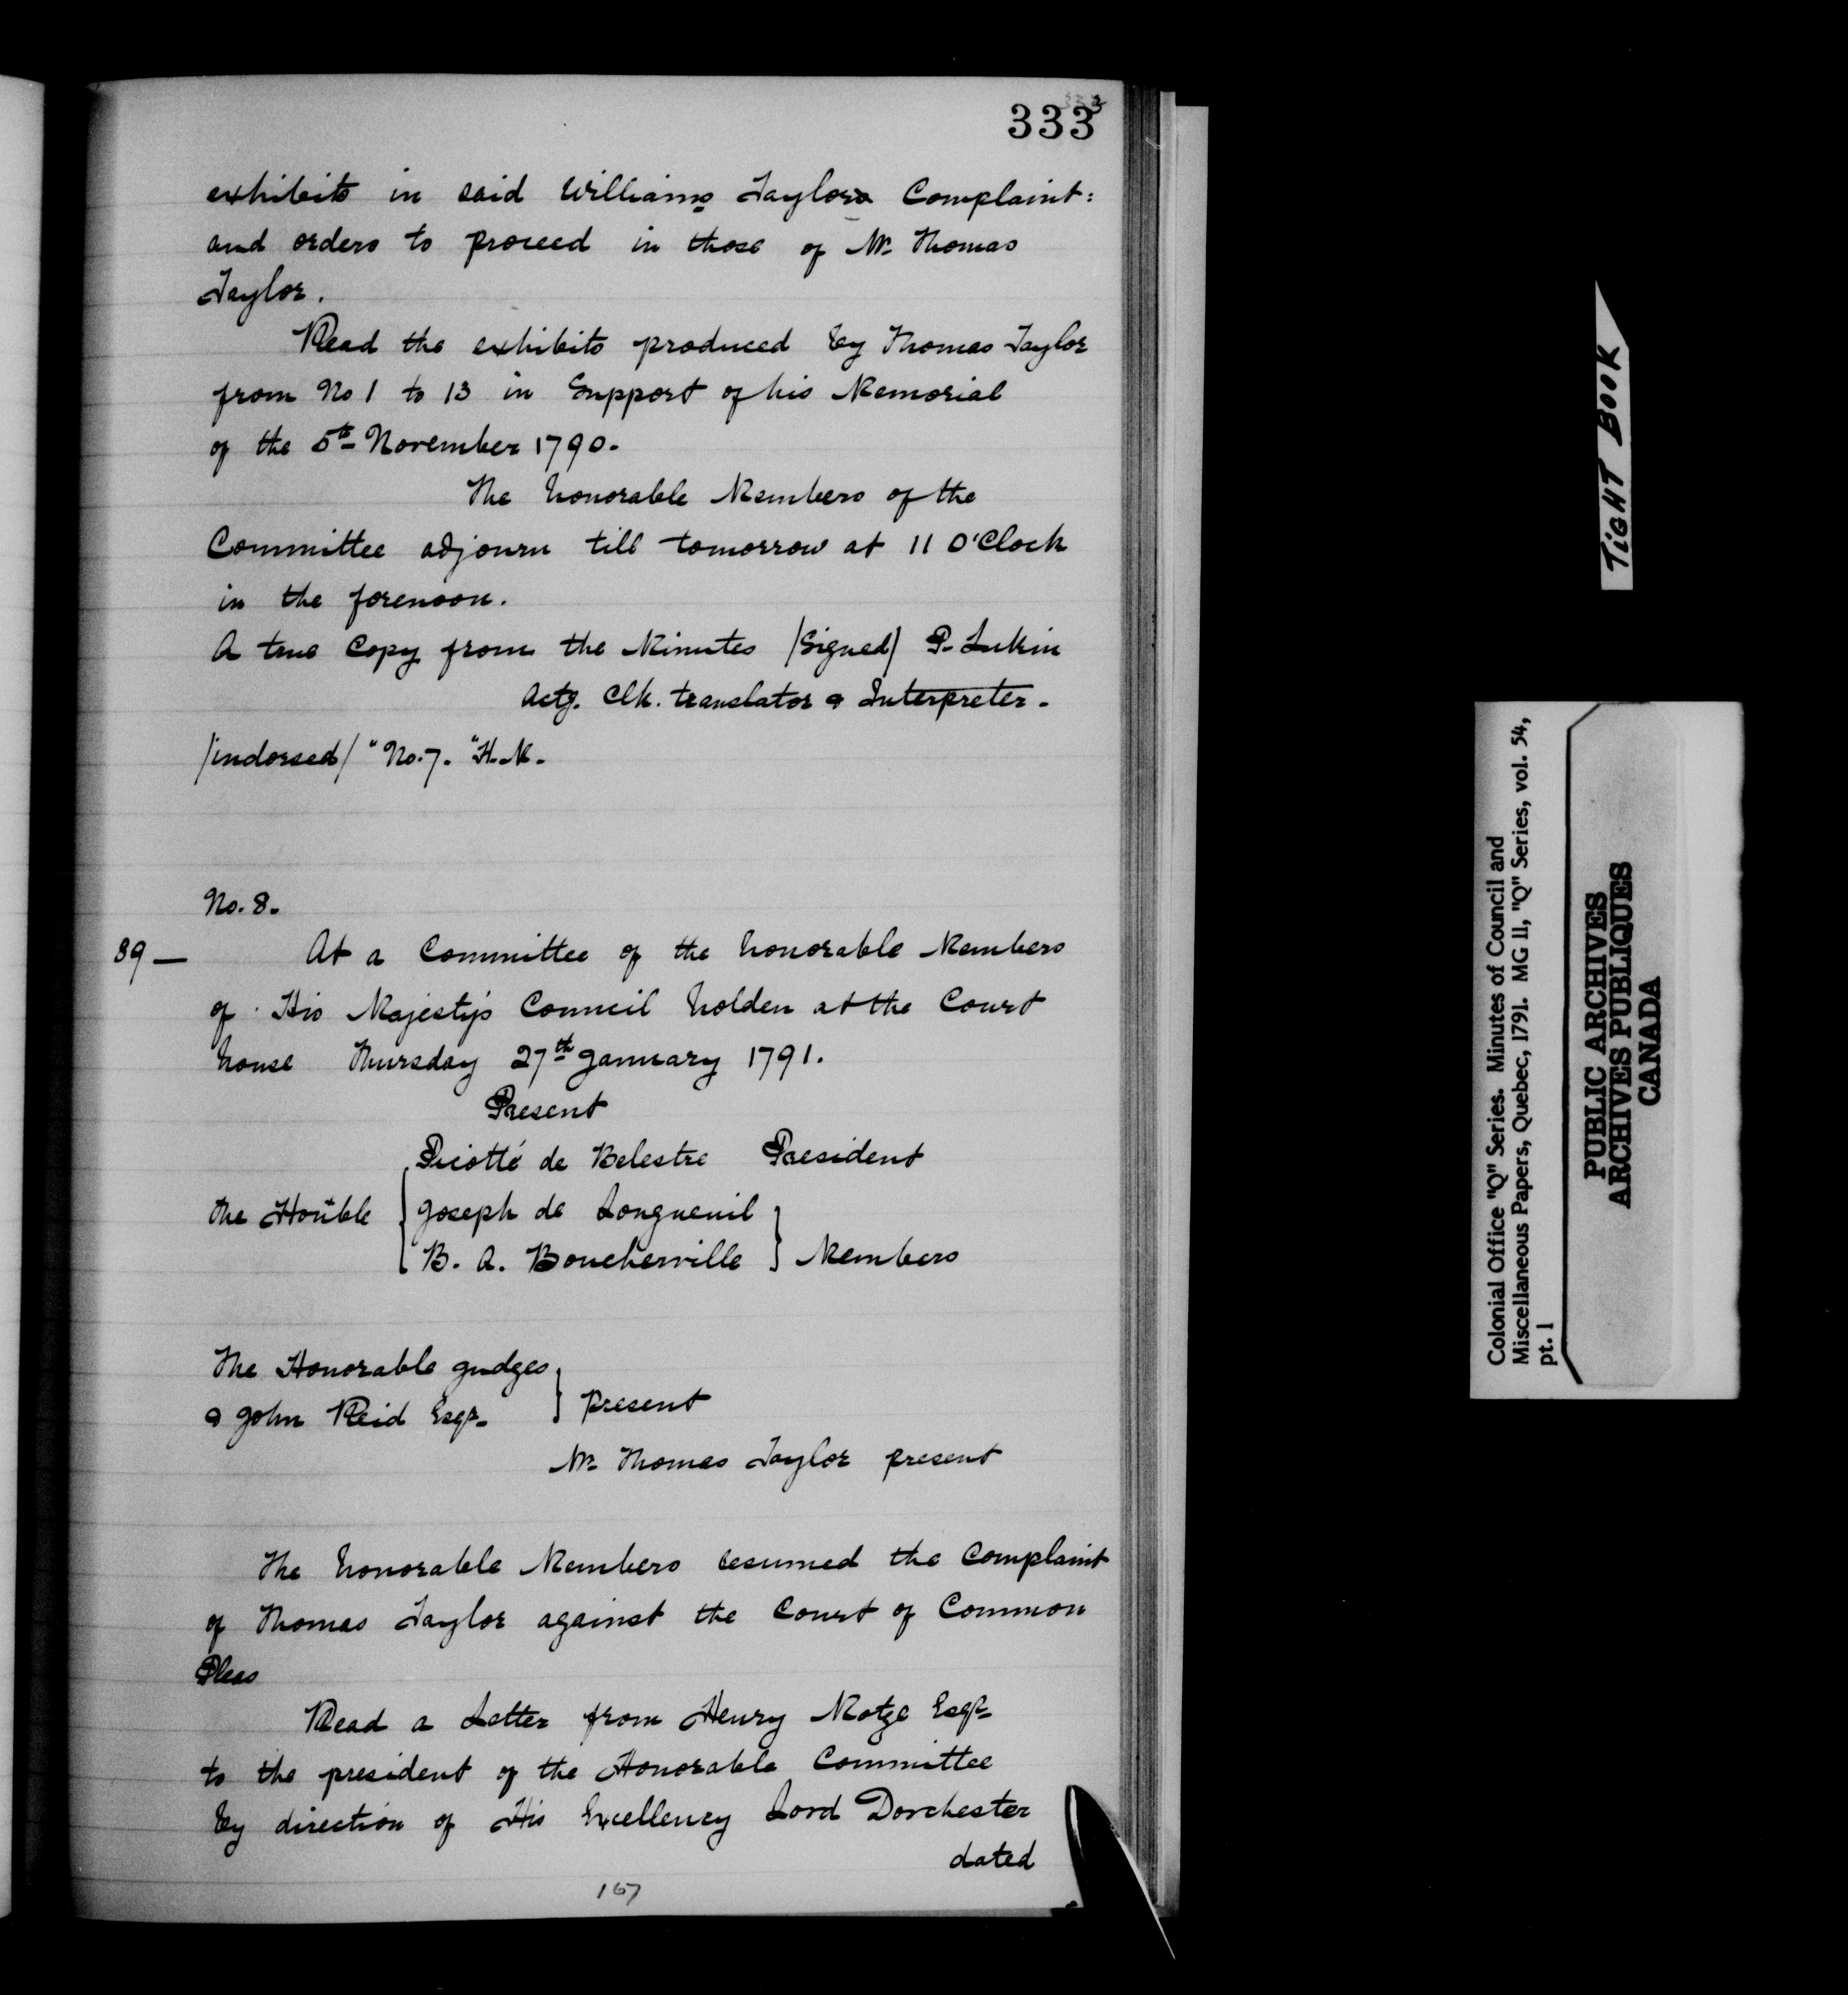 333
exhibits in said Williams Taylors Complaint:
and orders to proceed in those of Mr. Thomas
Taylor.
Read the exhibits produced by Thomas Taylor
from No 1 to 13 in Support of his Memorial
of the 5th November 1790.
The honorable Members of the
Committee adjourn till tomorrow at 11 O'Clock
in the forenoon.
A true Copy from the Minutes /Signed/ P. Lukin
Actg. Clk. translator & Interpreter.
/indorsed/ "No. 7. "H. M.
No. 8.
89 — At a Committee of the honorable Members
of His Majesty's Council holden at the Court
house Thursday 27th January 1791.
Present
Picotté de Belestre President
the Honble Joseph de Longueuil
B. A. Boucherville } Members
The Honorable Judges
& John Reid Esqr. } present
Mr. Thomas Taylor present
The honorable Members resumed the Complaint
of Thomas Taylor against the Court of Common
Pleas
Read a Letter from Henry Motze Esqr.
to the president of the Honorable Committee
by direction of His Excellency Lord Dorchester
dated
167
TIGHT BOOK
Colonial Office "Q" Series. Minutes of Council and
Miscellaneous Papers, Quebec, 1791. MG 11, "Q" Series, vol. 54,
pt. 1
PUBLIC ARCHIVES
ARCHIVES PUBLIQUES
CANADA